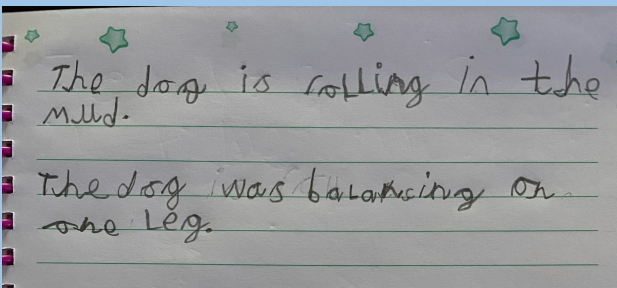 The dog is rolling in the
mud.
The dog was balansing on
one leg.